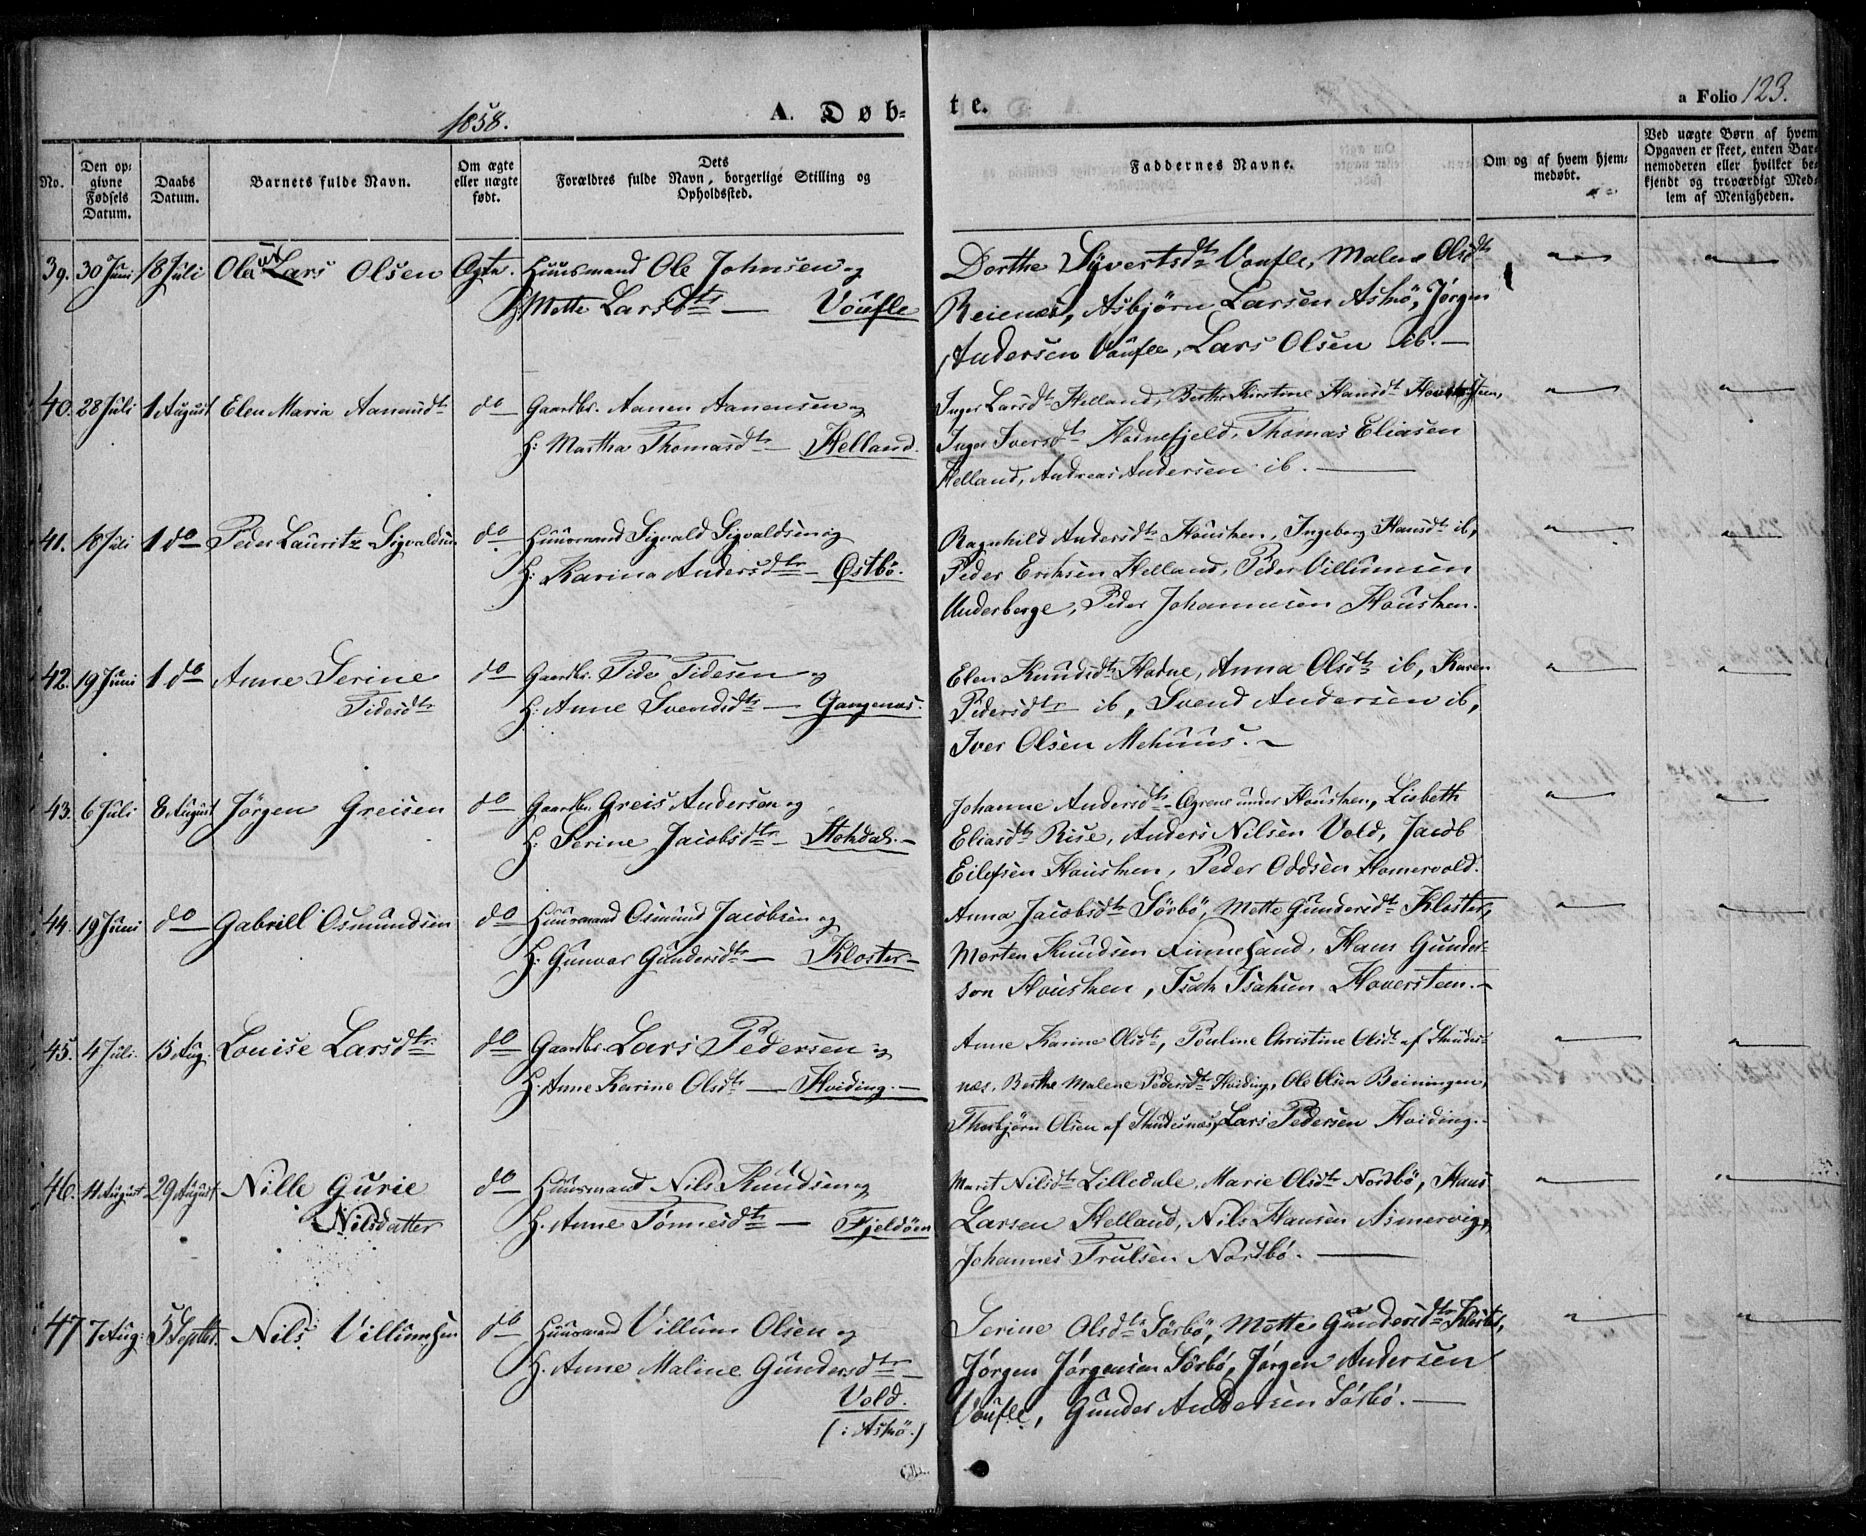 1858.
A. Døb-
te.
a Folio 123.
No.
Den op-
givne
Fødsels
Datum.
Daabs
Datum.
Barnets fulde Navn.
Om ægte
eller uægte
født.
Dets
Forældres fulde Navn, borgerlige Stilling og
Opholdssted.
Faddernes Navne.
Om og af hvem hjem-
medøbt.
Ved uægte Børn af hvem
Opgaven er skeet, enten Bar-
nemoderen eller hvilket be-
kjendt og troværdigt Med-
lem af Menigheden.
39. 30 Juni 18 Juli Ole Lars Olsen Ægte. Huusmand Ole Johnsen og
H: Mette Larsdtr — Voufle
Dorthe Syvertsdtr Voufle, Malene Olsdtr
Reienes, Asbjørn Larsen Askø, Jørgen
Andersen Voufle, Lars Olsen ib. —
40. 28 Juli 1 August Elen Maria Aanensdtr do Gaardbr. Aanen Aanensen og
H: Martha Thomasdtr — Helland.
Inger Larsdtr Helland, Berthe Kirstine Hansdt
Inger Iversdtr Hodnefjeld, Thomas Eliasen
Helland, Andreas Andersen ib. —
41. 18 Juli 1 do Peder Lauritz Sigvaldsen do Huusmand Sigvald Sigvaldsen og
H: Karina Andersdtr — Østbø.
Ragnhild Andersdtr Housken, Ingeborg Hansdt ib,
Peder Eriksen Helland, Peder Villumsen
Underberge, Peder Johannesen Housken.
42. 19 Juni 1 do Anne Serine do Gaardbr. Tide Tidesen og
Tidesdtr H: Anne Svendsdtr — Gangenes.
Elen Knudsdtr Hodne, Anna Olsdtr ib, Karen
Pedersdtr ib, Svend Andersen ib,
Iver Olsen Mehuus. —
43. 6 Juli 8 August Jørgen Greisen do Gaardbr. Greis Andersen og
H: Serine Jacobsdtr — Stokdal. —
Johanne Andersdtr Øgrene under Housken, Lisbeth
Eliasdtr Rise, Anders Nilsen Vold, Jacob
Eilefsen Housken, Peder Oddsen Homervold.
44. 19 Juni do Gabriell Osmundsen do Huusmand Osmund Jacobsen og
H: Gunvor Gundersdtr — Kloster —
Anna Jacobsdtr Sørbø, Mette Gundersdtr Kloster,
Morten Knudsen Finnesand, Hans Gunder-
son Housken, Isak Isaksen Hoversteen. —
45. 4 Juli 15 Aug. Louise Larsdtr do Gaardbr. Lars Pedersen og
H. Anne Karine Olsdtr — Hviding. —
Anne Karine Olsdtr, Pouline Christine Olsdt af Skudes-
nes, Berthe Malene Pedersdtr Hviding, Ole Olsen Beiningen,
Thorbjørn Olsen af Skudesnes, Lars Pedersen Hviding. —
46. 11 August 29 August Nille Gurie do Huusmand Nils Knudsen og
Nilsdatter H. Anne Tønnesdtr — Fjeldøen
Marit Nilsdtr Lilledale, Marie Olsdtr Nordbø, Hans
Larsen Helland, Nils Hansen Asmervig,
Johannes Trulsen Nordbø. —
47 7 Aug: 5 Septbr. Nils Villumsen do Huusmand Villum Olsen og
H. Anne Maline Gundersdtr —
Vold.
(: Askø.)
Serine Olsdtr Sørbø, Mette Gundersdtr Kloster,
Jørgen Jørgensen Sørbø, Jørgen Andersen
Voufle, Gunder Andersen Sørbø. —